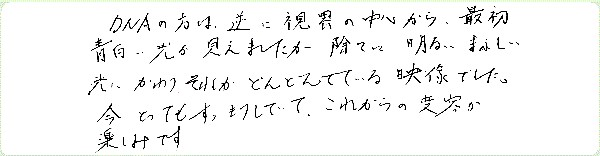 DNAの方は、逆に視界の中心から、最初
青白い光が見えましたが 除々に 明るい まぶしい
光に かわり それが どんどんでている 映像でした。
今 とっても すっきりしていて、これからの変容が
楽しみです